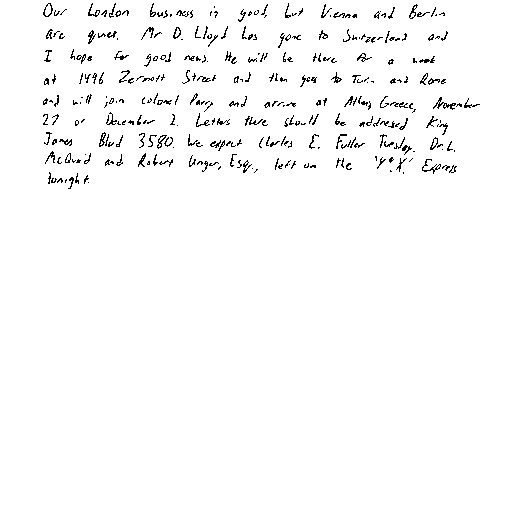 Our London business is good, but Vienna and Berlin
are quiet. Mr D. Lloyd has gone to Switzerland and
I hope for good news. He will be there for a week
at 1496 Zermott Street and then goes to Turin and Rome
and will join colonel Parry and arrive at Athens, Greece, November
27 or December 2. Letters there should be addressed King
James Blvd 3580. We expect Charles E. Fuller Tuesday. Dr. L.
McQuaid and Robert Unger, Esq., left on the 'Y.X.' Express
tonight.